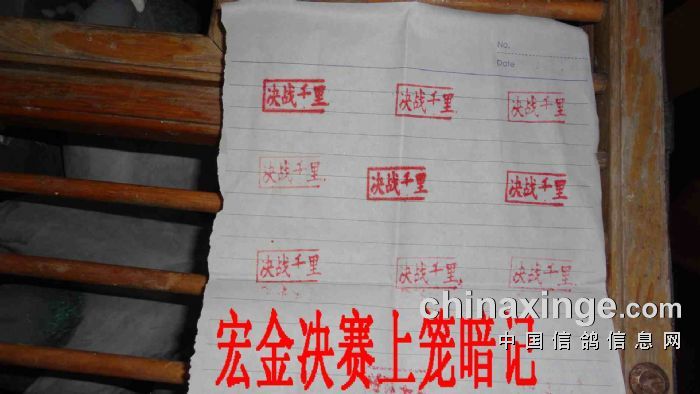 No.
Date
决战千里 决战千里 决战千里
决战千里 决战千里 决战千里
决战千里 决战千里 决战千里
chinaxinge.com
中国信鸽信息网
宏金决赛上笼暗记